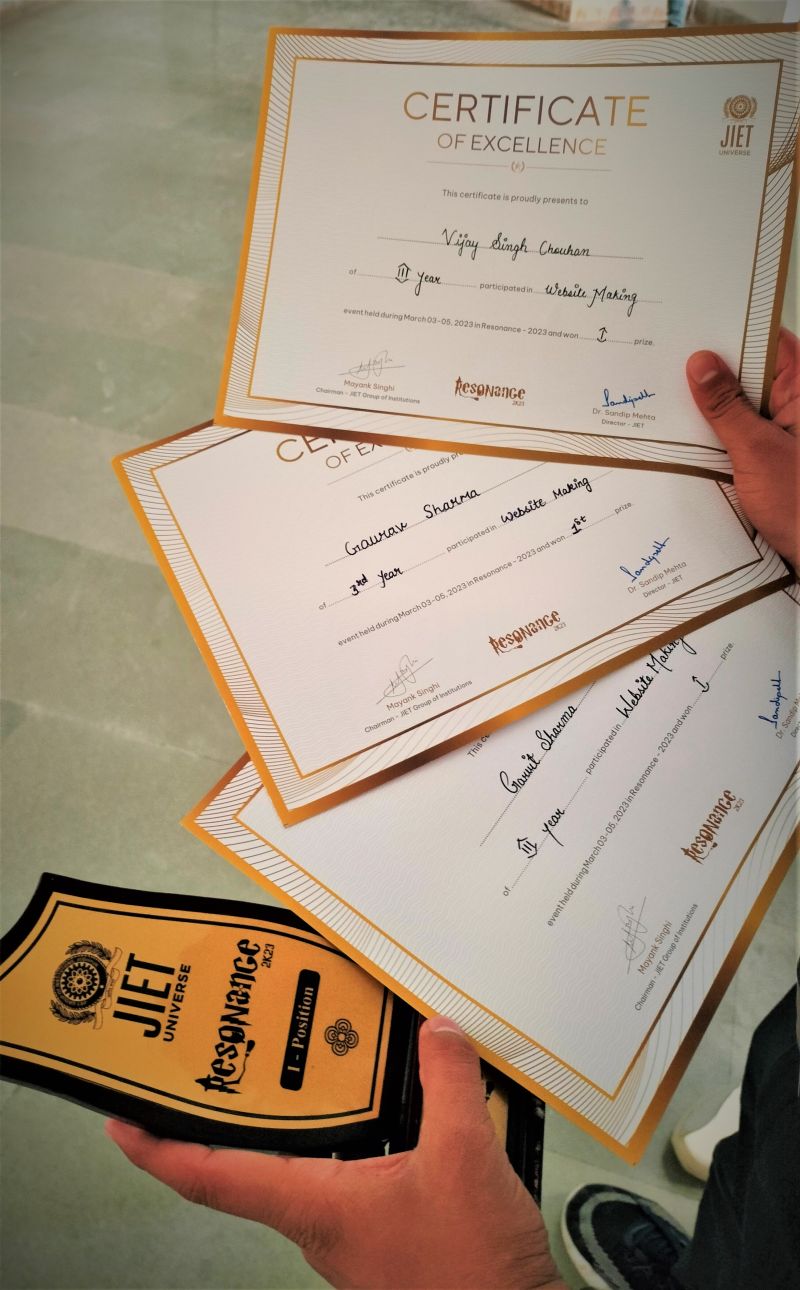 JIET
UNIVERSE
Resonance
2K23
I - Position
This ce
Garvit Sharma
of III year participated in Website Making
event held during March 03-05, 2023 in Resonance - 2023 and won I prize.
Mayank Singhi
Chairman - JIET Group of Institutions
Resonance
2K23
Sandipalt
Dr. Sandip Mehta
CE
OF EX
This certificate is proudly pr
Gaurav Sharma
of 3rd year participated in Website Making
event held during March 03-05, 2023 in Resonance - 2023 and won 1st prize.
Mayank Singhi
Chairman - JIET Group of Institutions
Resonance
2K23
Dr. Sandip Mehta
Director - JIET
CERTIFICATE
OF EXCELLENCE
This certificate is proudly presents to
Vijay Singh Chouhan
of III year participated in Website Making
event held during March 03-05, 2023 in Resonance - 2023 and won I prize.
Mayank Singhi
Chairman - JIET Group of Institutions
Resonance
2K23
Dr. Sandip Mehta
Director - JIET
JIET
UNIVERSE